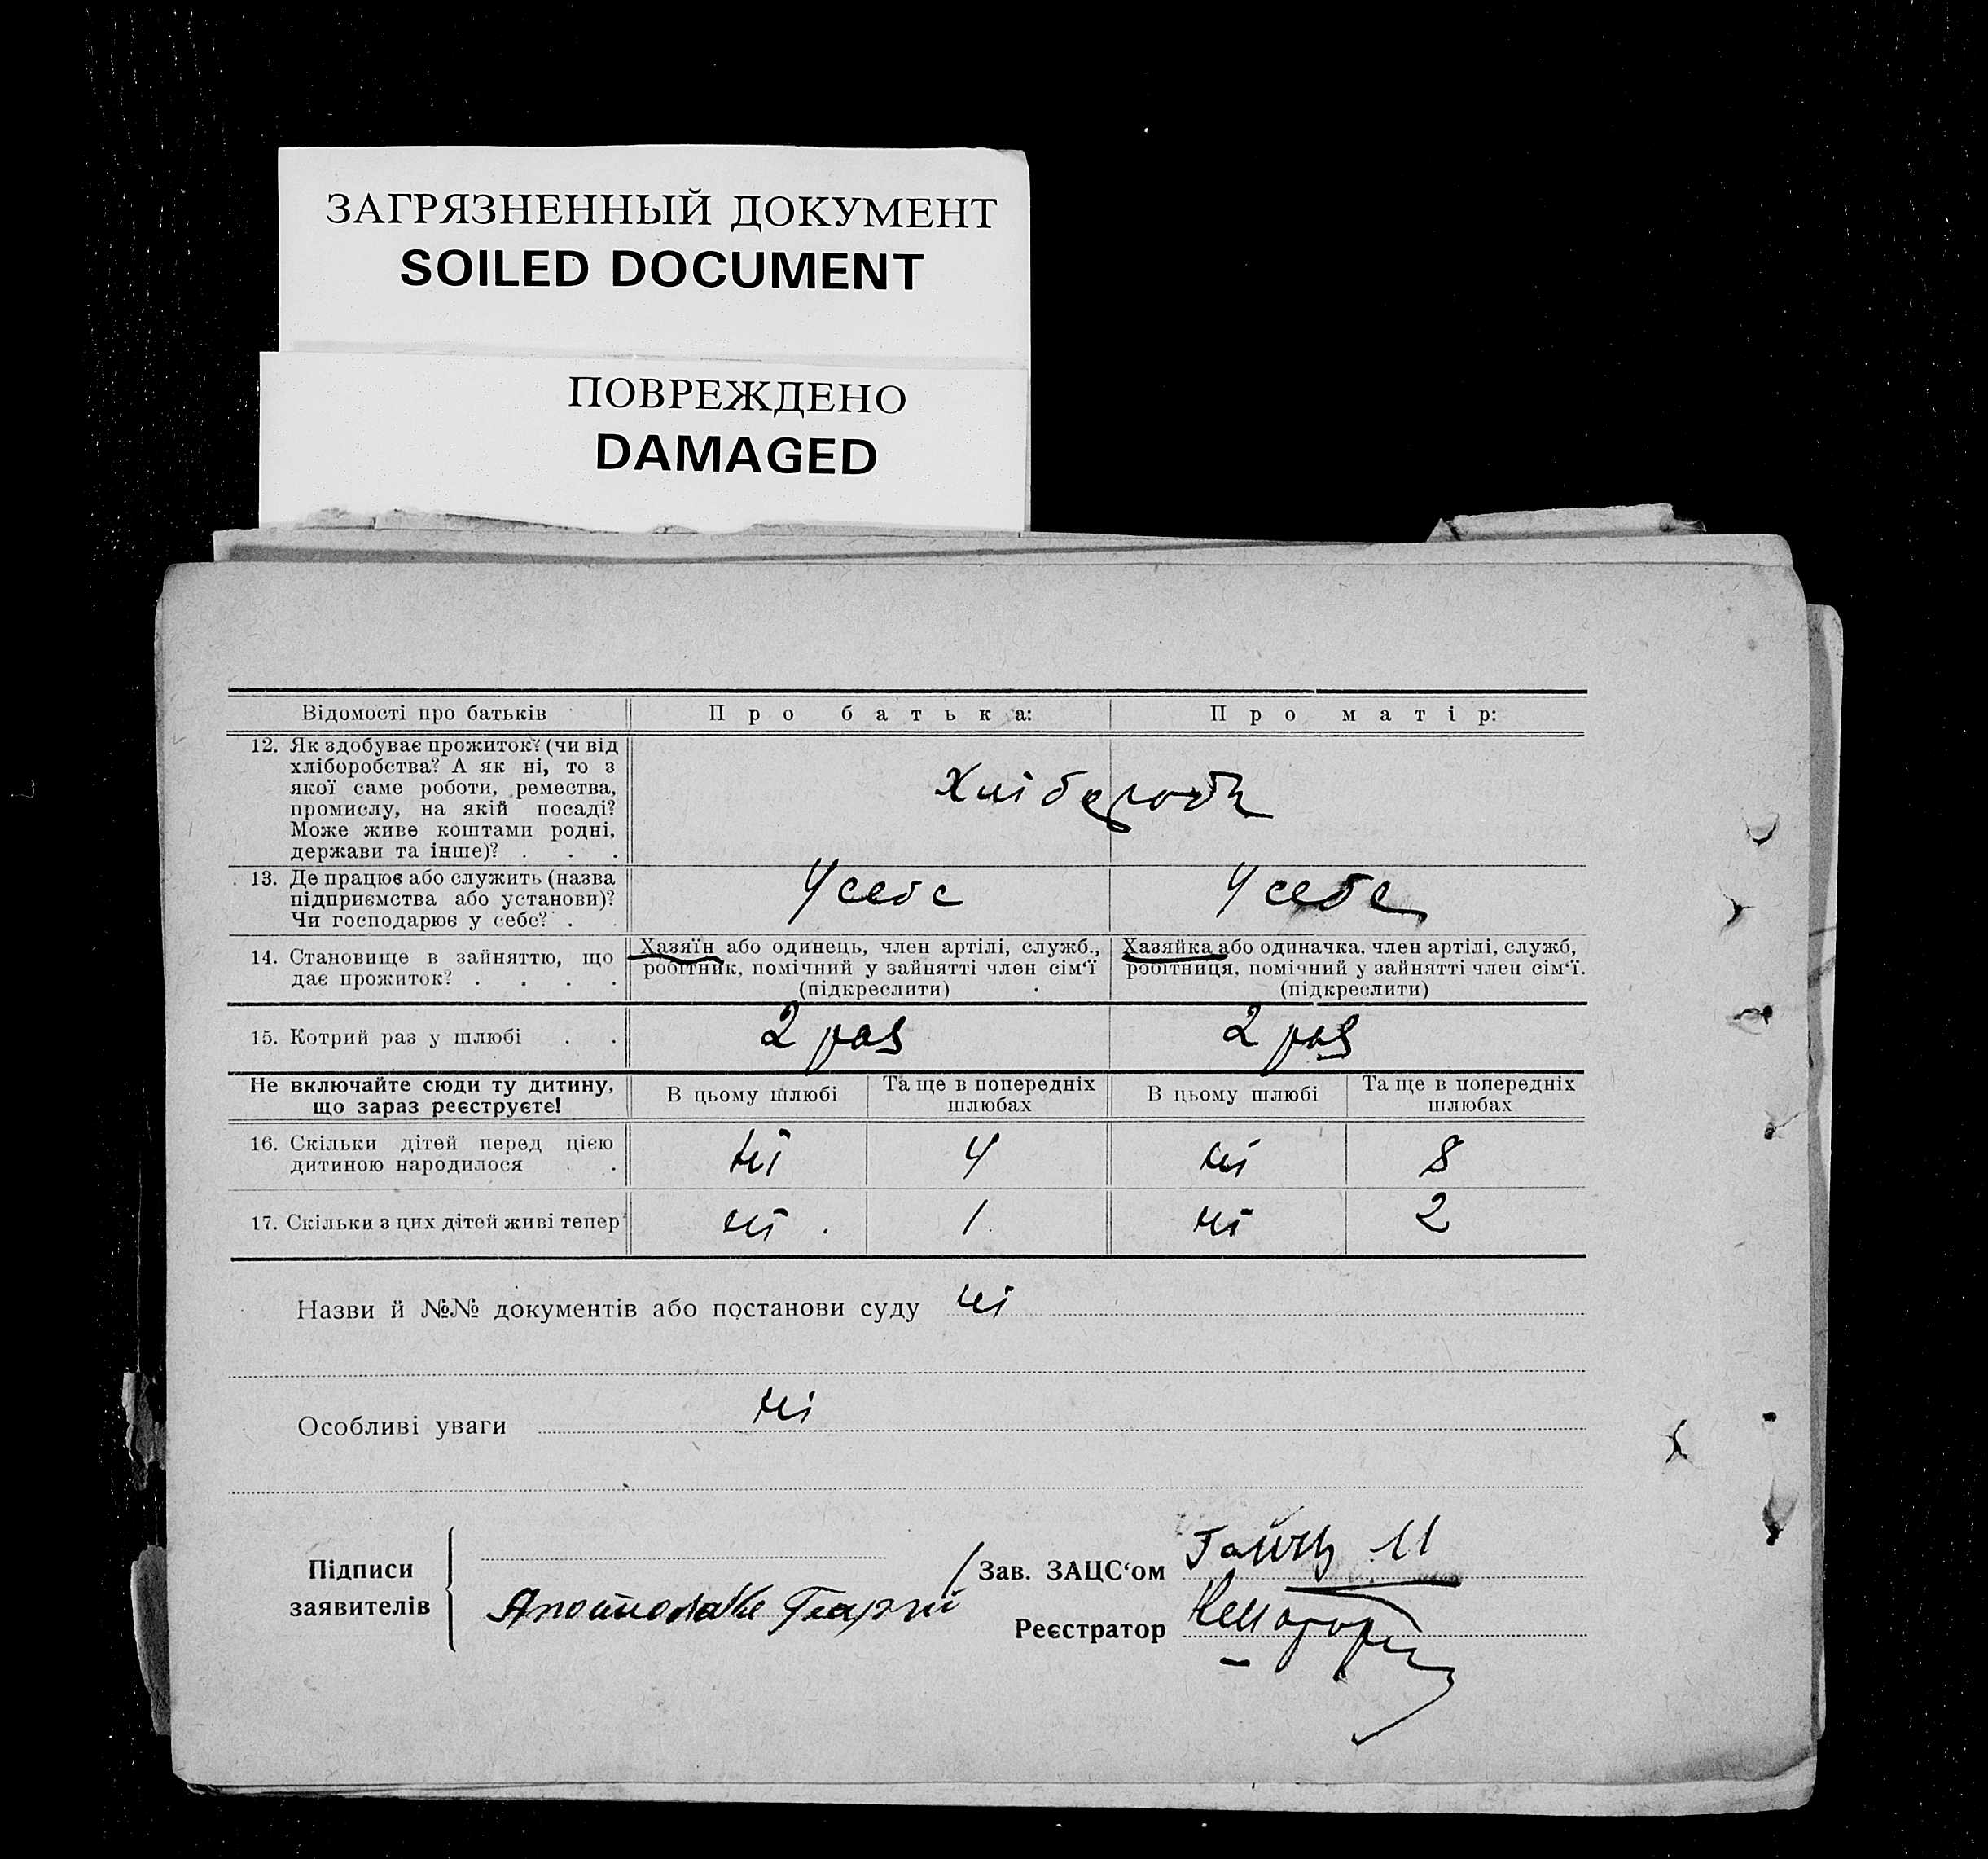 ЗАГРЯЗНЕННЫЙ ДОКУМЕНТ
SOILED DOCUMENT
ПОВРЕЖДЕНО
DAMAGED
Відомості про батьків
Про батька:
Про матір:
12. Як здобуває прожиток? (чи від
хліборобства? А як ні, то з
якої саме роботи, ремества,
промислу, на якій посаді?
Може живе коштами родні,
держави та інше)? . . .
Хлібороби
13. Де працює або служить (назва
підприємства або установи)?
Чи господарює у себе? . .
У себе
У себе
14. Становище в зайняттю, що
дає прожиток? . . . .
Хазяїн або одинець, член артілі, служб.,
робітник, помічний у зайнятті член сім'ї
(підкреслити)
Хазяйка або одиначка, член артілі, служб,
робітниця, помічний у зайнятті член сім'ї.
(підкреслити)
15. Котрий раз у шлюбі . .
2 раз
2 раз
Не включайте сюди ту дитину,
що зараз реєструєте!
В цьому шлюбі
Та ще в попередніх
шлюбах
В цьому шлюбі
Та ще в попередніх
шлюбах
16. Скільки дітей перед цією
дитиною народилося . .
ні
4
ні
8
17. Скільки з цих дітей живі тепер
ні
1
ні
2
Назви й №№ документів або постанови суду ні
Особливі уваги ні
Підписи
заявителів
Апостолаке Георгій
Зав. ЗАЦС'ом
Реєстратор